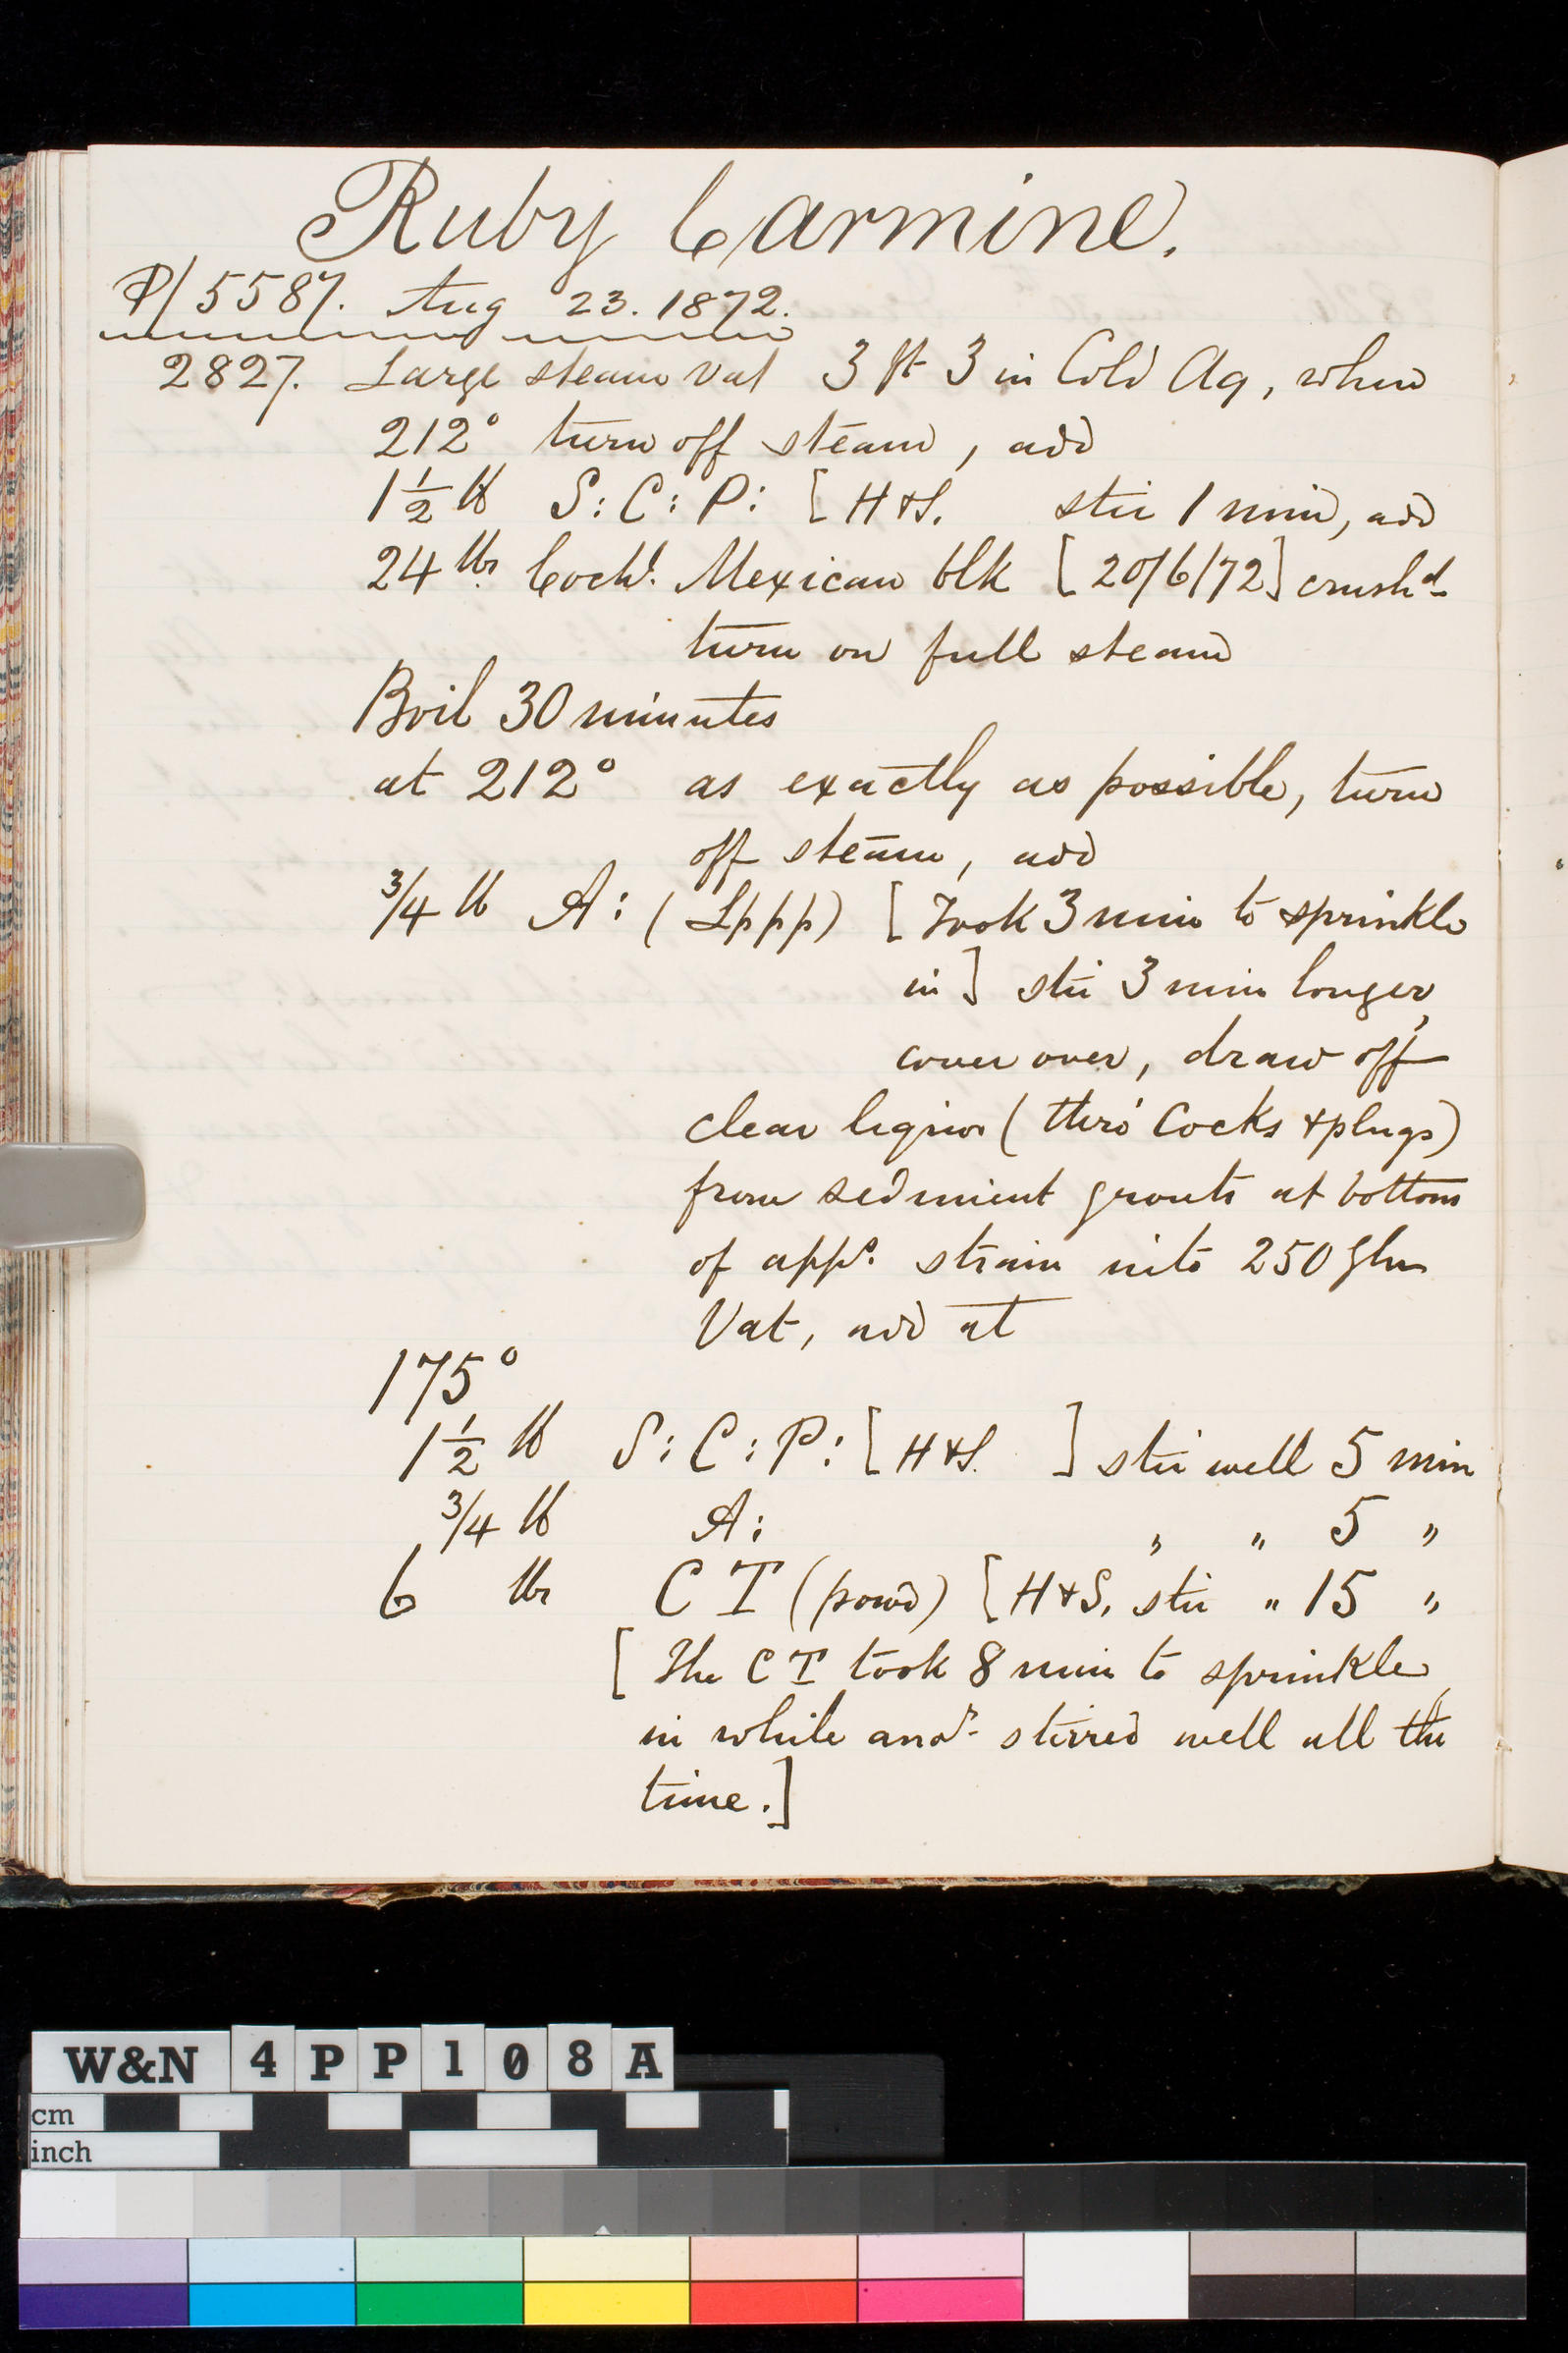 Ruby Carmine.
P/ 5587. Aug 23. 1872.
2827. Large steam Vat 3 ft 3 in Cold Aq, when
212° turn off steam, add
1 1/2 lb S: C: P: [ H & S. stir 1 min, add
24 lbs. Cochl. Mexican blk [ 20/6/72 ] crushd.
turn on full steam
Boil 30 minutes
at 212° as exactly as possible, turn
off steam, add
3/4 lb A: ( Lppp) [ Took 3 min to sprinkle
in ] stir 3 min longer,
cover over, draw off
clear liquor ( thro' Cocks & plugs)
from sediment grouts at bottom
of strain into 250 Glln
Vat, add at
175°
1 1/2 lb S: C: P: [ H & S. ] stir well 5 min
3/4 lb A: „ „ 5 „
6 lbs C T (powd) [ H & S, stir „ 15 „
[ The C T took 8 min to sprinkle
in while anor. stirred well all the
time. ]
W&N 4PP108A
cm
inch